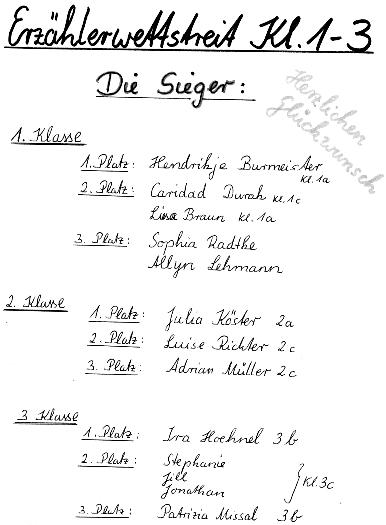 Erzählerwettstreit Kl. 1-3
Die Sieger:
Herzlichen
Glückwunsch
1. Klasse
1. Platz: Hendrikje Burmeister
Kl. 1a
2. Platz: Caridad Durah Kl. 1c
Lisa Braun Kl. 1a
3. Platz: Sophia Radthe
Allyn Lehmann
2. Klasse
1. Platz: Julia Köster 2a
2. Platz: Luise Richter 2c
3. Platz: Adrian Müller 2c
3 Klasse
1. Platz: Ira Hoehnel 3b
2. Platz: Stephanie
Jill
Jonathan
Kl. 3c
3. Platz: Patrizia Missal 3b